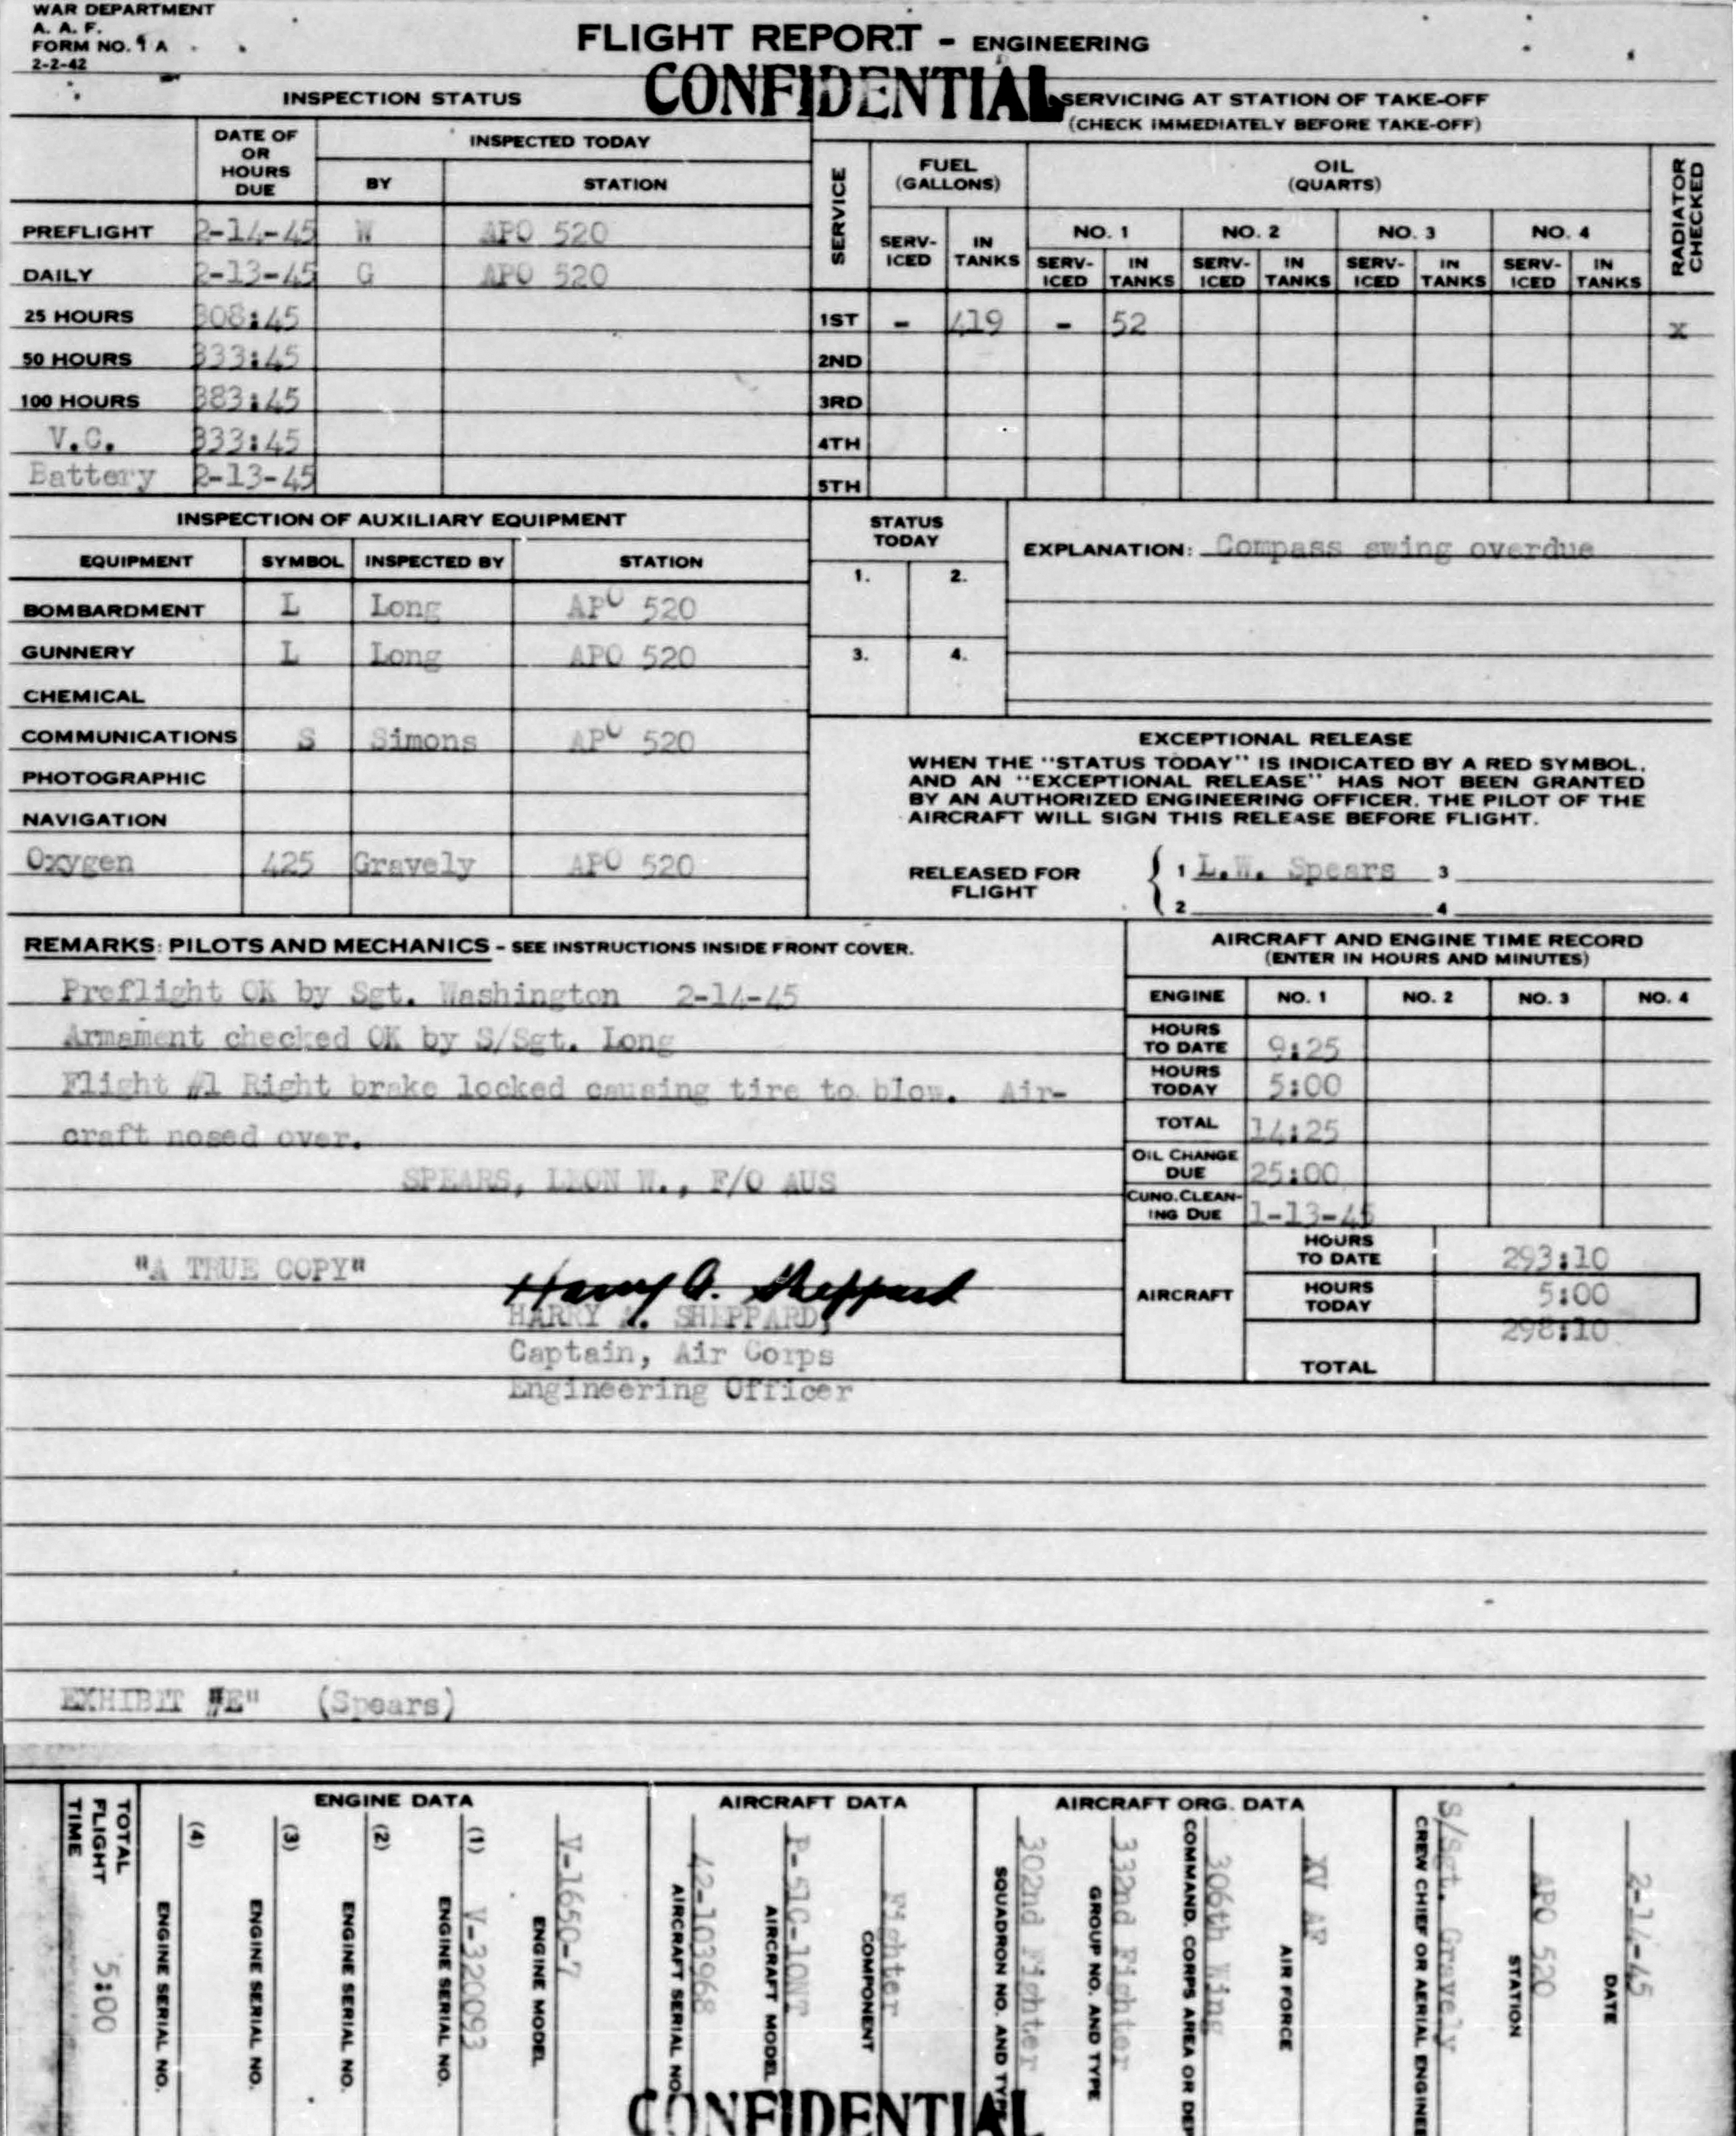 WAR DEPARTMENT
A. A. F.
FORM NO. 1 A
2-2-42
FLIGHT REPORT - ENGINEERING
CONFIDENTIAL
INSPECTION STATUS
DATE OF OR HOURS DUE
INSPECTED TODAY
BY STATION
PREFLIGHT 2-14-45 W APO 520
DAILY 2-13-45 G APO 520
25 HOURS 308:45
50 HOURS 333:45
100 HOURS 383:45
V.C. 333:45
Battery 2-13-45
SERVICING AT STATION OF TAKE-OFF
(CHECK IMMEDIATELY BEFORE TAKE-OFF)
SERVICE
FUEL (GALLONS)
OIL (QUARTS)
RADIATOR CHECKED
NO. 1 NO. 2 NO. 3 NO. 4
SERV-ICED IN TANKS SERV-ICED IN TANKS SERV-ICED IN TANKS SERV-ICED IN TANKS SERV-ICED IN TANKS
1ST - 419 - 52 X
2ND
3RD
4TH
5TH
INSPECTION OF AUXILIARY EQUIPMENT
EQUIPMENT SYMBOL INSPECTED BY STATION
BOMBARDMENT L Long APO 520
GUNNERY L Long APO 520
CHEMICAL
COMMUNICATIONS S Simons APO 520
PHOTOGRAPHIC
NAVIGATION
Oxygen 425 Gravely APO 520
STATUS TODAY
1. 2.
3. 4.
EXPLANATION: Compass swing overdue
EXCEPTIONAL RELEASE
WHEN THE "STATUS TODAY" IS INDICATED BY A RED SYMBOL,
AND AN "EXCEPTIONAL RELEASE" HAS NOT BEEN GRANTED
BY AN AUTHORIZED ENGINEERING OFFICER, THE PILOT OF THE
AIRCRAFT WILL SIGN THIS RELEASE BEFORE FLIGHT.
RELEASED FOR FLIGHT
1 L.W. Spears 3
2 4
REMARKS: PILOTS AND MECHANICS - SEE INSTRUCTIONS INSIDE FRONT COVER.
Preflight OK by Sgt. Washington 2-14-45
Armament checked OK by S/Sgt. Long
Flight #1 Right brake locked causing tire to blow. Air-
craft nosed over.
SPEARS, LEON W., F/O AUS
"A TRUE COPY"
Harry A. Sheppard
HARRY A. SHEPPARD,
Captain, Air Corps
Engineering Officer
AIRCRAFT AND ENGINE TIME RECORD
(ENTER IN HOURS AND MINUTES)
ENGINE NO. 1 NO. 2 NO. 3 NO. 4
HOURS TO DATE 9:25
HOURS TODAY 5:00
TOTAL 14:25
OIL CHANGE DUE 25:00
CUNO.CLEAN-ING DUE 1-13-45
AIRCRAFT
HOURS TO DATE 293:10
HOURS TODAY 5:00
TOTAL 298:10
EXHIBIT "E" (Spears)
2-14-45
DATE
APO 520
STATION
S/Sgt. Gravely
CREW CHIEF OR AERIAL ENGINEE
AIRCRAFT ORG. DATA
XV AF
AIR FORCE
306th Wing
COMMAND, CORPS AREA OR DEP
332nd Fighter
GROUP NO. AND TYPE
302nd Fighter
SQUADRON NO. AND TYPE
AIRCRAFT DATA
Fighter
COMPONENT
P-51C-10NT
AIRCRAFT MODEL
42-103968
AIRCRAFT SERIAL NO.
ENGINE DATA
V-1650-7
ENGINE MODEL
(1) V-320093
ENGINE SERIAL NO.
(2)
ENGINE SERIAL NO.
(3)
ENGINE SERIAL NO.
(4)
ENGINE SERIAL NO.
TOTAL FLIGHT TIME 5:00
CONFIDENTIAL